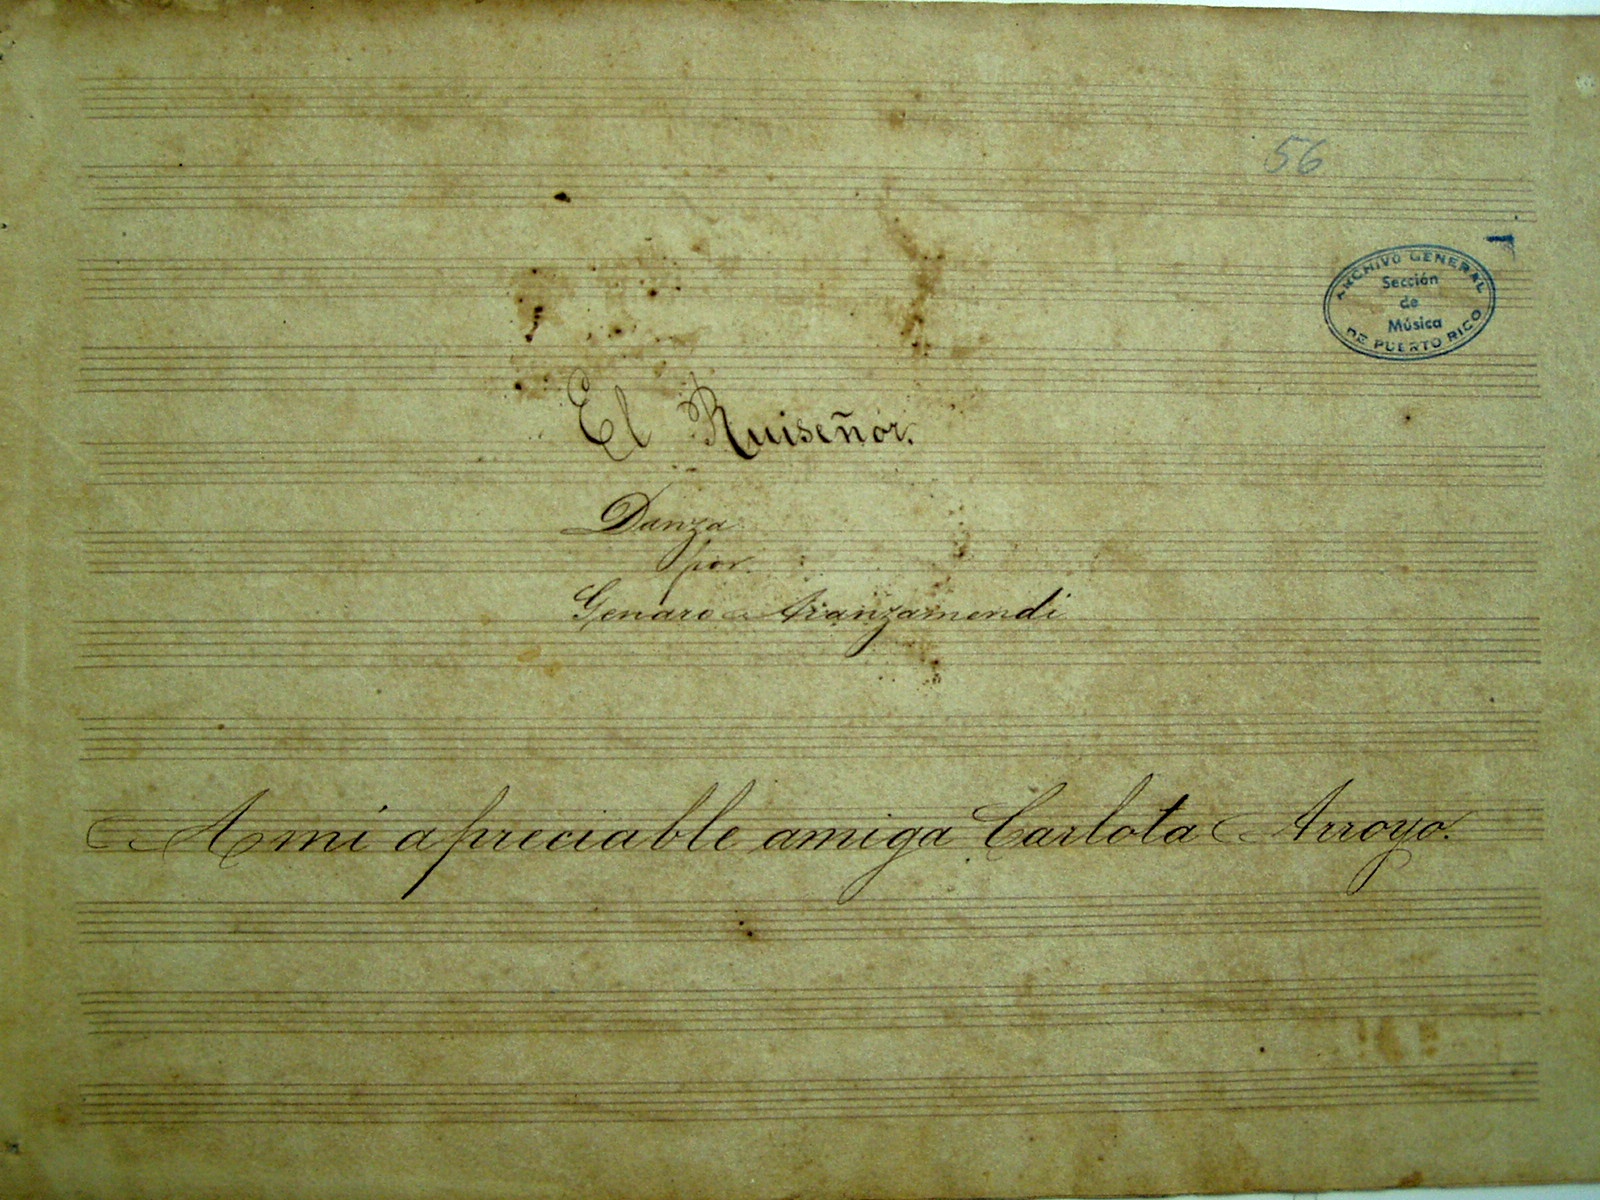 56
ARCHIVO GENERAL
Sección
de
Música
DE PUERTO RICO
El Ruiseñor.
Danza
por
Genaro Aranzamendi
A mi apreciable amiga Carlota Arroyo.